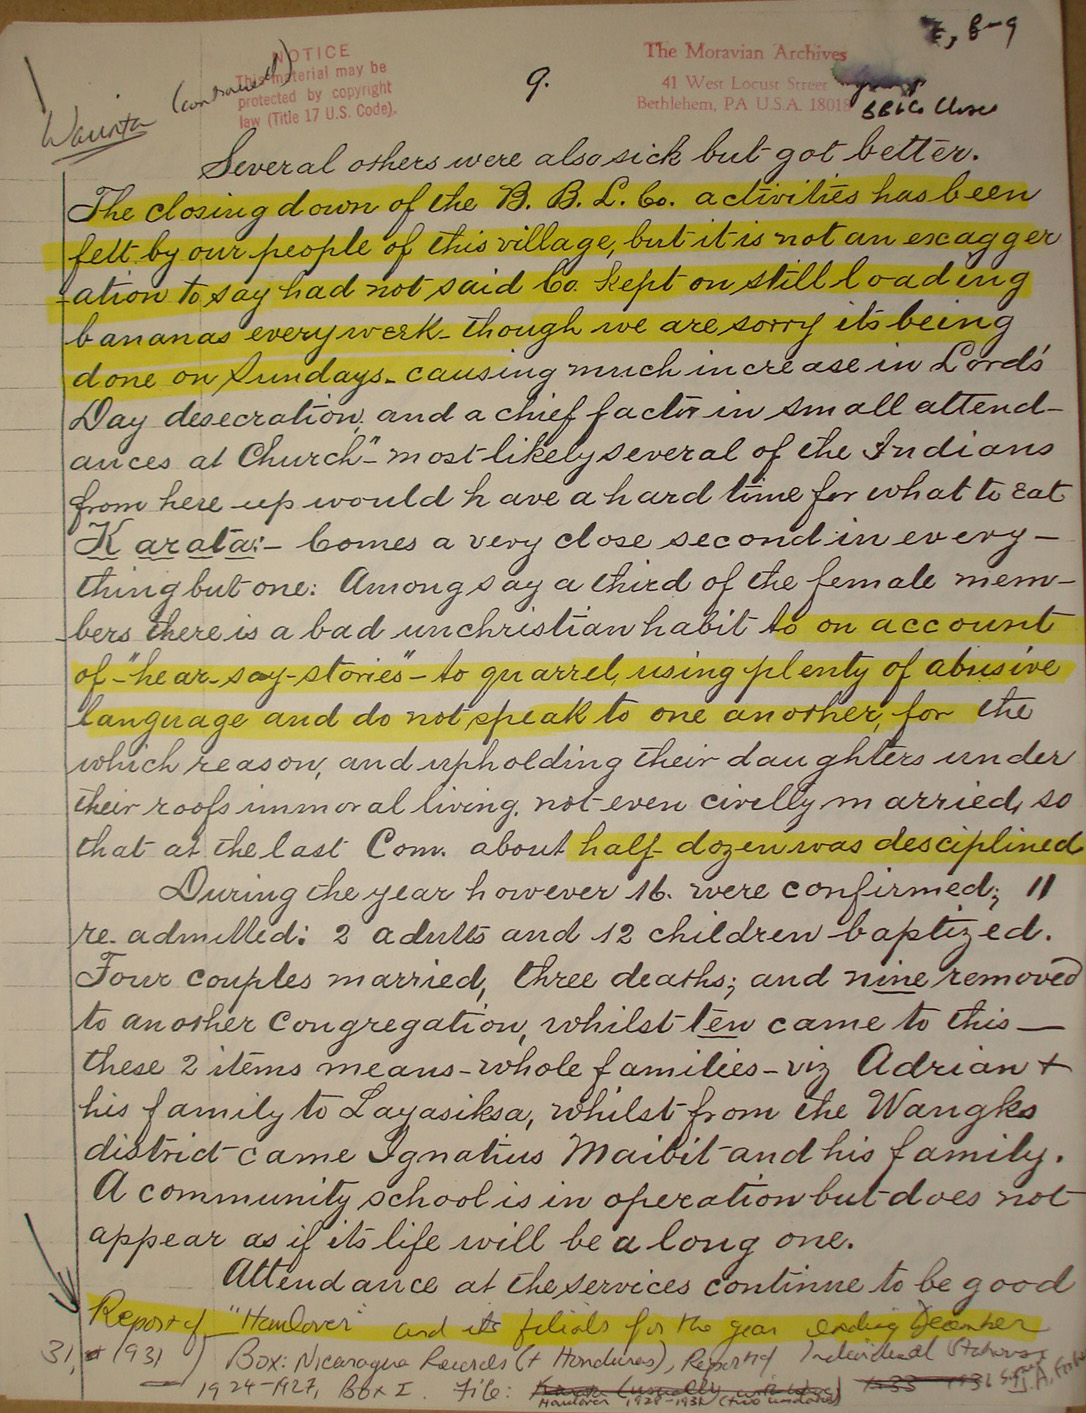 E, B-9
NOTICE
This material may be
protected by copyright
law (Title 17 U.S. Code).
The Moravian Archives
41 West Locust Street
Bethlehem, PA U.S.A. 18018
9.
(continued)
Wounta
Several others were also sick but got better.
The closing down of the B. B. L. Co. activities has been
felt by our people of this village, but it is not an exagger
-ation to say had not said Co. kept on still loading
bananas every week - though we are sorry its being
done on Sundays - causing much increase in Lord's
Day desecration, and a chief factor in small attend-
ances at Church" - most likely several of the Indians
from here up would have a hard time for what to eat
Karata:- Comes a very close second in every-
thing but one: Among say a third of the female mem-
bers there is a bad unchristian habit to on account
of "hear-say-stories" - to quarrel, using plenty of abusive
language and do not speak to one another, for the
which reason, and upholding their daughters under
their roofs immoral living, not even civilly married, so
that at the last Com. about half dozen was desciplined
During the year however 16. were confirmed; 11
re-admitted: 2 adults and 12 children baptized.
Four couples married, three deaths; and nine removed
to another congregation, whilst ten came to this —
these 2 items means - whole families - viz Adrian +
his family to Layasiksa, whilst from the Wangks
district came Ignatius Maibit and his family.
A community school is in operation but does not
appear as if its life will be a long one.
Attendance at the services continue to be good
Report of "Haulover" and its filials for the year ending December
31, 1931 Box: Nicaragua Records (+ Honduras), Report of Individual Stations
1924-1927, Box I. File:
Haulover 1928-1931